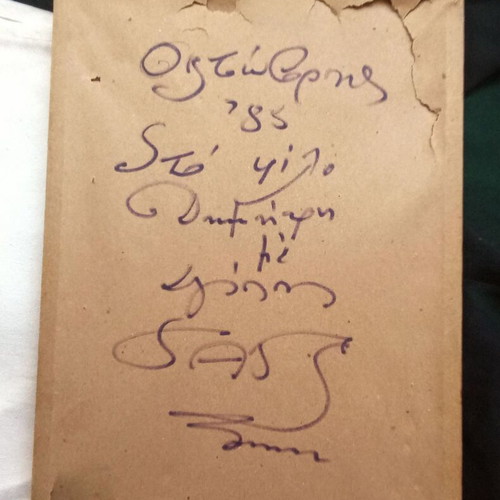 Οκτώβρης
'85
Στό φίλο
Δημήτρη
μέ
αγάπη